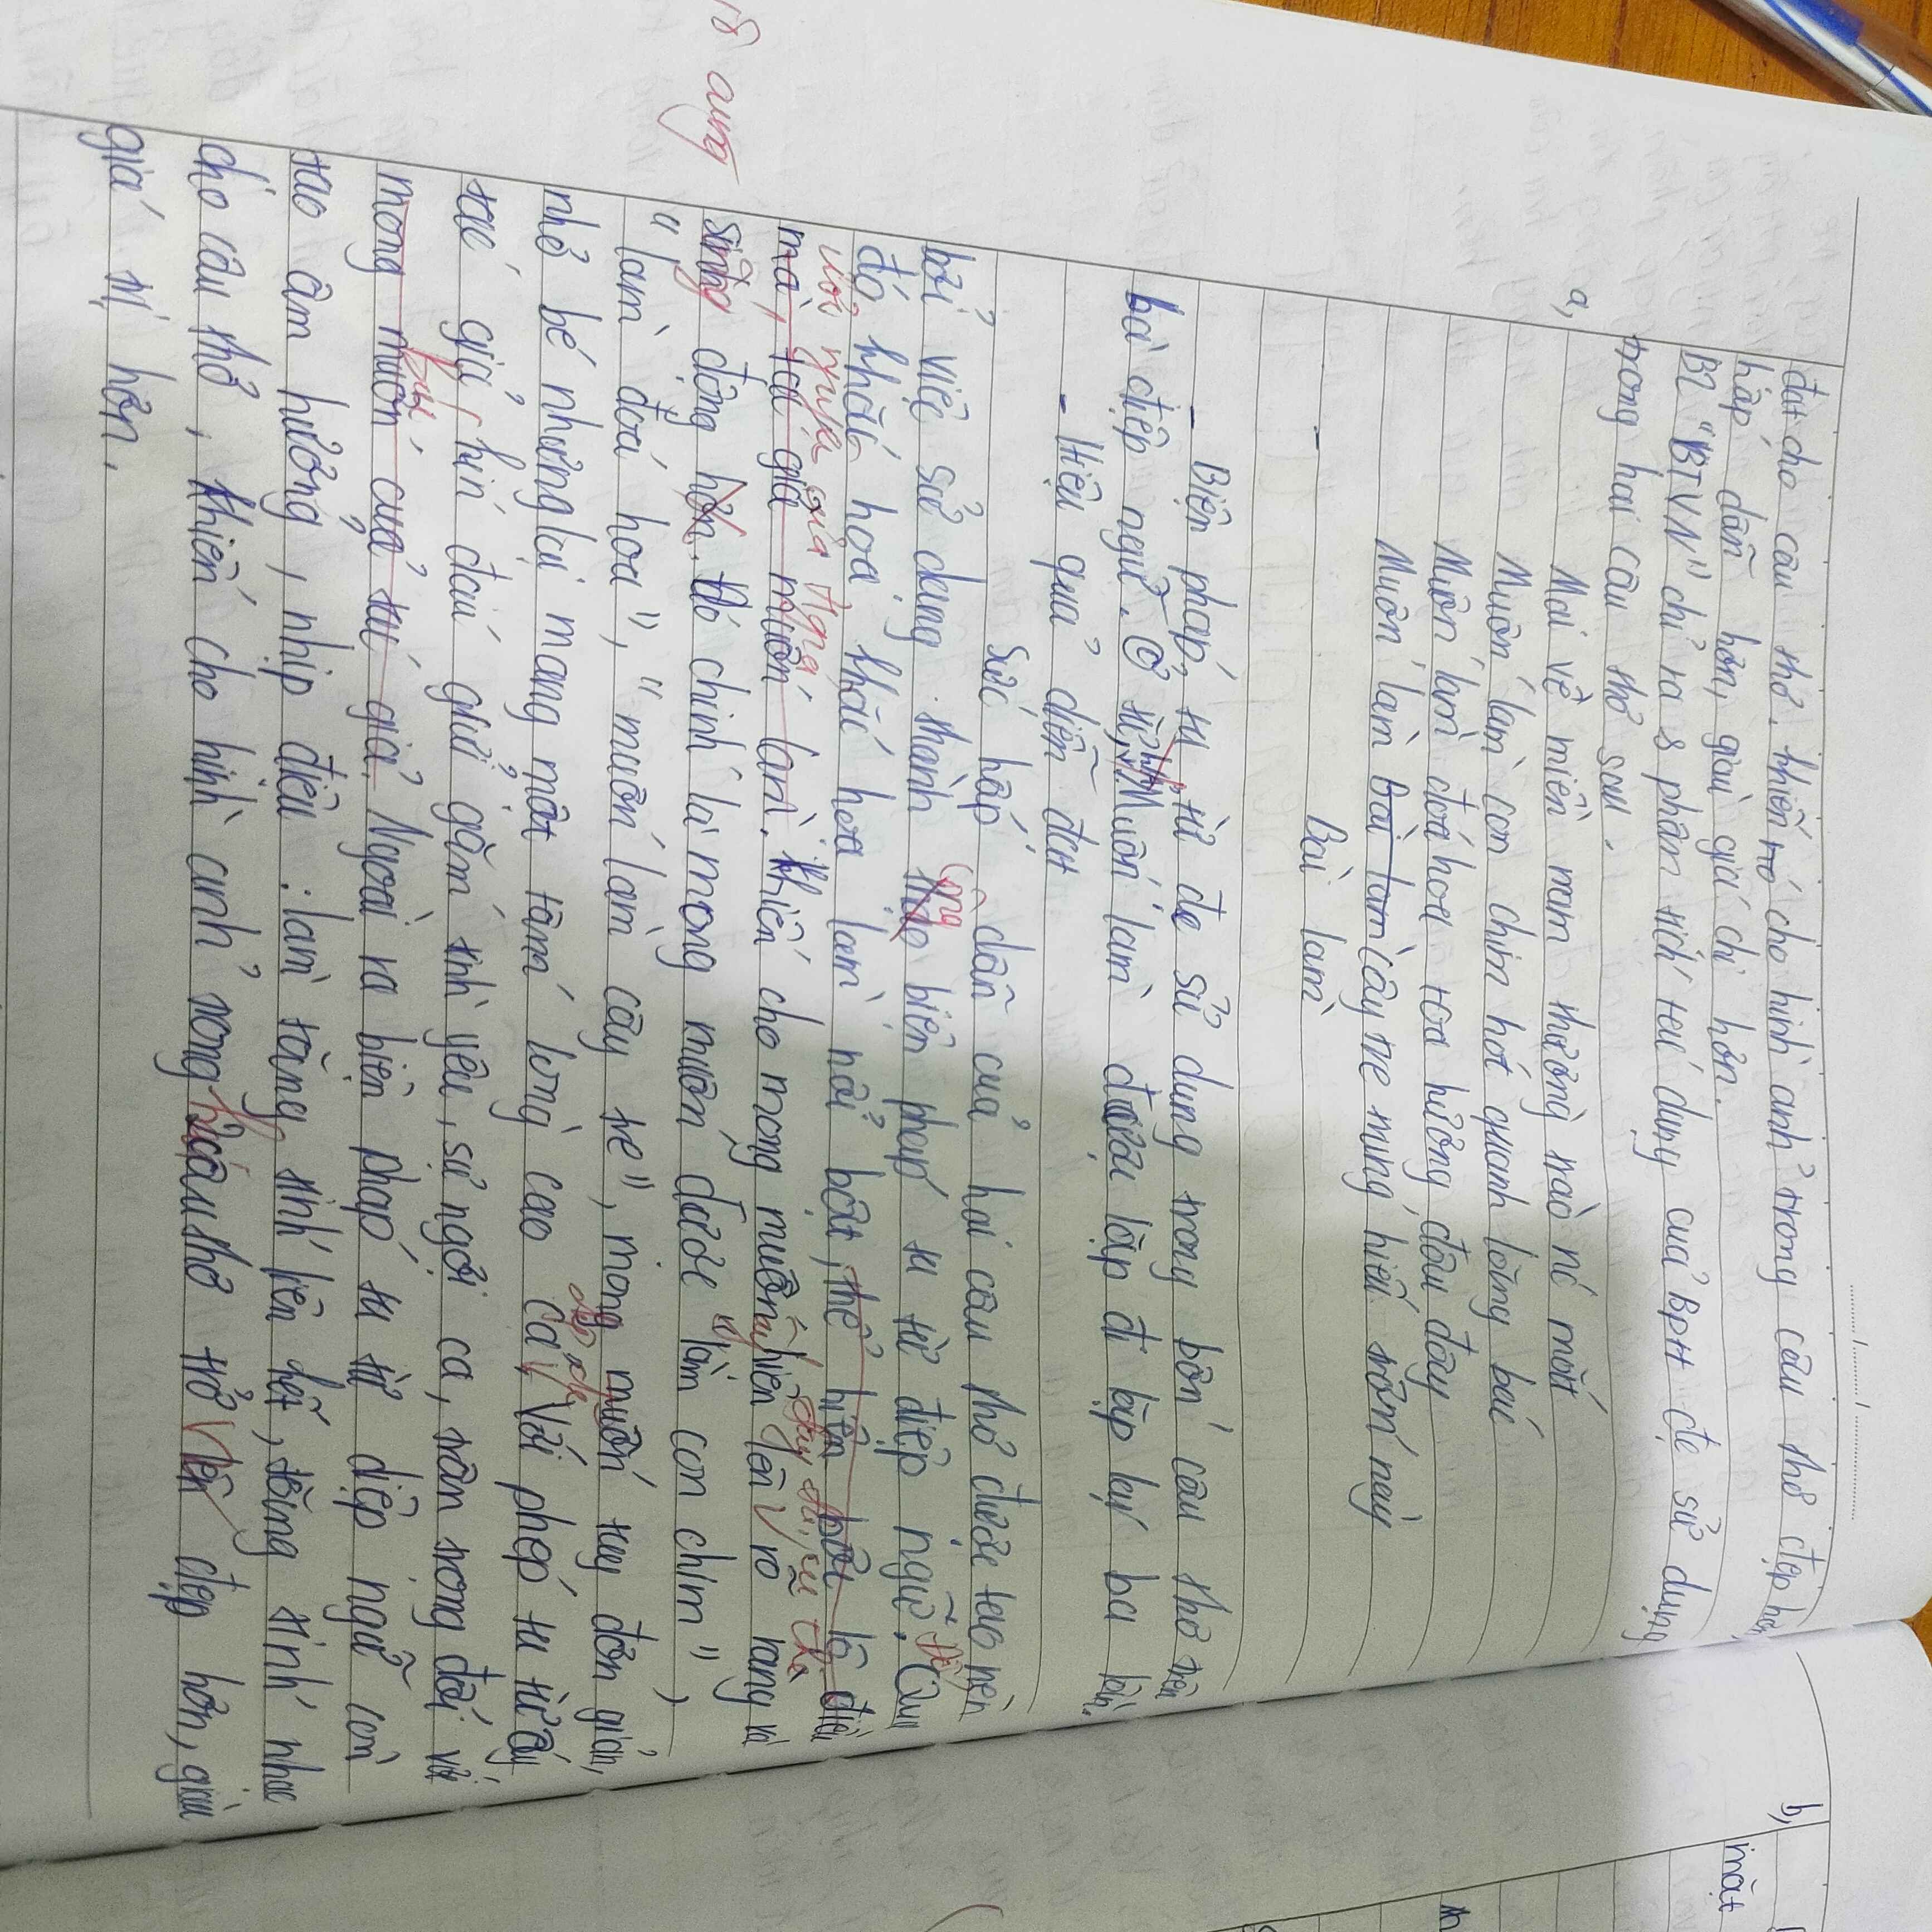 đạt cho câu thơ, khiến cho hình ảnh trong câu thơ đẹp hơn,
hấp dẫn hơn, giàu giá chị hơn.
B2 "BTVN" chỉ ra & phân tích tác dụng của BPTT đc sử dụng
trong hai câu thơ sau.
a, Mai về miền nam thương trào nc mắt
Muốn làm con chim hót quanh lăng bác
Muốn làm đoá hoa toả hương đâu đây
Muốn làm cây tre trung hiếu trốn này
Bài làm
- Biện pháp tu từ đc sử dụng trong bốn câu thơ trên
là điệp ngữ. Ở từ Muốn làm được lặp đi lặp lại ba lần.
- Hiệu quả diễn đạt
Sức hấp dẫn của hai câu thơ được tạo nên
bởi việc sử dụng thành công biện pháp tu từ điệp ngữ. Qua
đó, khắc hoạ, làm nổi bật, thể hiện
ước nguyện của tác giả
mà tác giả muốn làm. khiến cho mong muốn hiện lên rõ ràng và
18 dụng
sinh động hơn. Đó chính là mong muốn được "làm con chim",
"làm đoá hoa", "muốn làm cây tre", mong muốn tuy đơn giản,
nhỏ bé nhưng lại mang một tấm lòng cao cả. Với phép tu từ ấy,
tác giả kín đáo gửi gắm tình yêu, sự ngợi ca, trân trọng đối với
mong muốn của tác giả. Ngoài ra biện pháp tu từ điệp ngữ còn
tạo âm hưởng, nhịp điệu: làm tăng tính liên kết, tăng tính nhạc
cho câu thơ, khiến cho hình ảnh trong câu thơ trở lên đẹp hơn, giàu
giá trị hơn.
b,
mặt